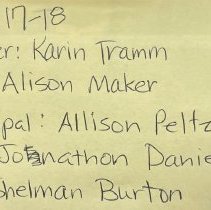 17-18
er: Karin Tramm
Alison Maker
pal: Allison Peltz
Jonathon Danie
Shelman Burton